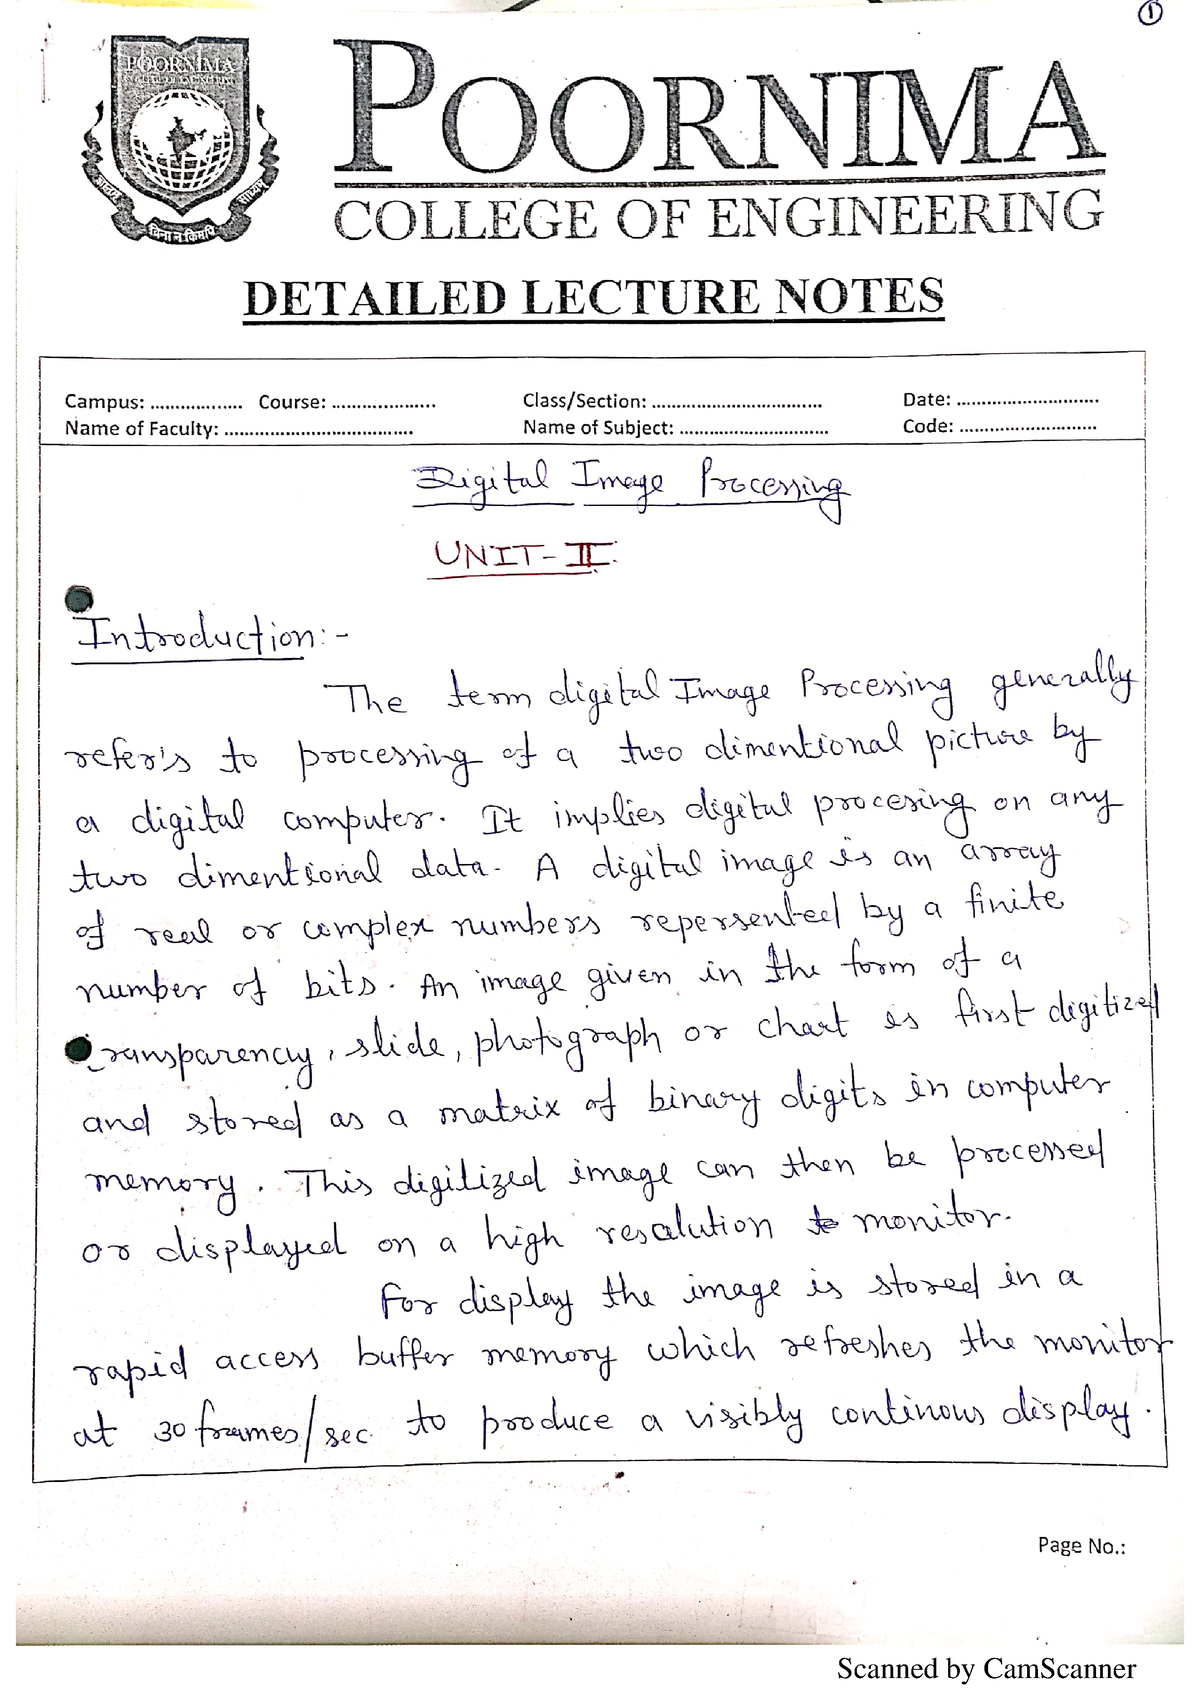 ①
POORNIMA
COLLEGE OF ENGINEERING
POORNIMA
COLLEGE OF ENGINEERING
विना न किमपि
DETAILED LECTURE NOTES
Campus: .................. Course: ..................... Class/Section: .................................. Date: ............................
Name of Faculty: ...................................... Name of Subject: .............................. Code: ...........................
Digital Image Processing
UNIT-II
Introduction:-
The term digital Image Processing generally
refer's to processing of a two dimentional picture by
a digital computer. It implies digital procesing on any
two dimentional data. A digital image is an array
of real or complex numbers repersented by a finite
number of bits. An image given in the form of a
transparency, slide, photograph or chart is first digitized
and stored as a matrix of binary digits in computer
memory. This digitized image can then be processed
or displayed on a high resolution monitor.
For display the image is stored in a
rapid access buffer memory which refreshes the monitor
at 30 frames/sec. to produce a visibly continous display.
Page No.:
Scanned by CamScanner